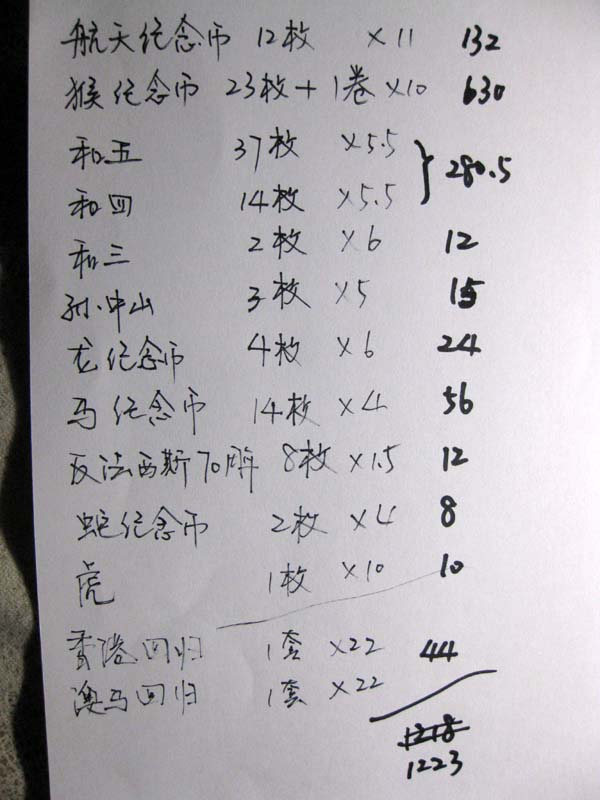 航天纪念币 12枚 ×11 132
猴纪念币 23枚+1卷×10 630
和五 37枚 ×5.5
280.5
和四 14枚 ×5.5
和三 2枚 ×6 12
孙中山 3枚 ×5 15
龙纪念币 4枚 ×6 24
马纪念币 14枚 ×4 56
反法西斯70周年 8枚 ×1.5 12
蛇纪念币 2枚 ×4 8
虎 1枚 ×10 10
香港回归 1套 ×22 44
澳马回归 1套 ×22
1218
1223